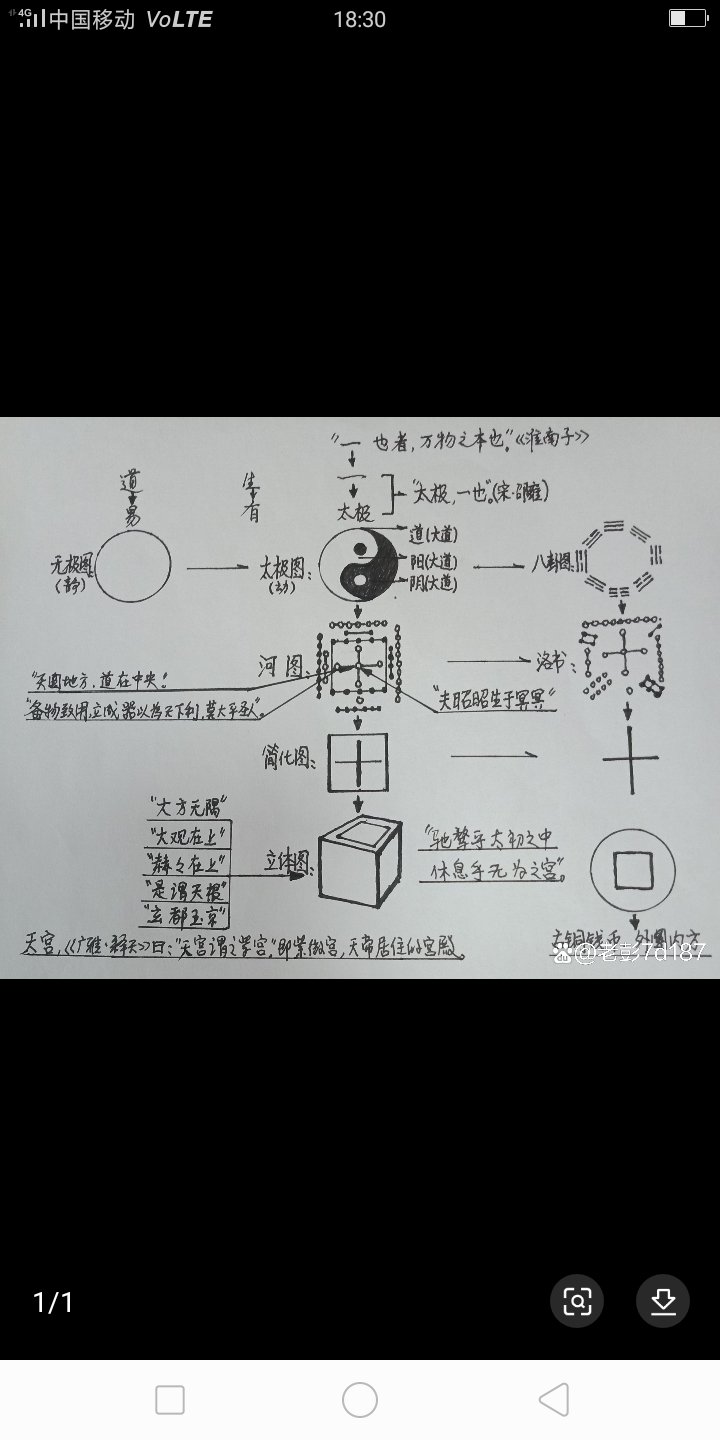 4G 中国移动 VoLTE 18:30
“一 也者，万物之本也。”《淮南子》
道 生 一
易 有 太极
“太极，一也。”(宋·邵雍)
无极图
(静)
太极图：
(动)
道(大道)
阳(大道)
阴(大道)
八卦图：
河图：
洛书：
“天圆地方，道在中央。”
“备物致用，立成器以为天下利，莫大乎圣人”。
“夫昭昭生于冥冥”
简化图：
“大方无隅”
“大观在上”
“赫々在上”
“是谓天根”
“玄都玉京”
立体图：
“驰骛乎太初之中
休息乎无为之宫”。
天宫，《广雅·释天》曰：“天宫谓之紫宫。”即紫微宫，天帝居住的宫殿。
古铜钱币 外圆内方
@老彭7d187
1/1